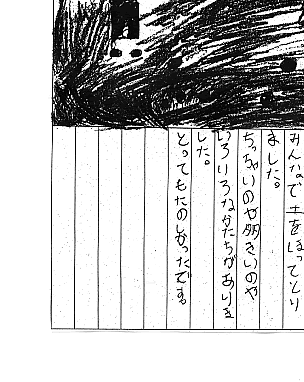 みんなで土をほってとり
ました。
ちっちゃいのや多きいのや
いろいろなかたちがありま
した。
とってもたのしかったです。